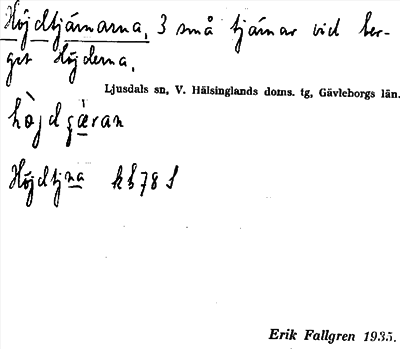 Höjdtjärnarna, 3 små tjärnar vid ber-
get Höjderna.
Ljusdals sn, V. Hälsinglands doms. tg, Gävleborgs län.
Höjdtjna kb 78 S
Erik Fallgren 1935.